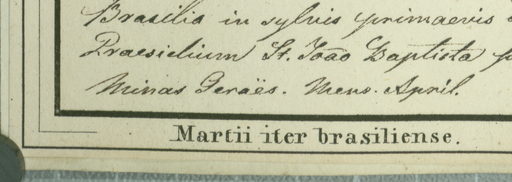 Brasilia in sylvis primaevis
Praesidium St. João Baptista
Minas Geraës. Mens. April.
Martii iter brasiliense.